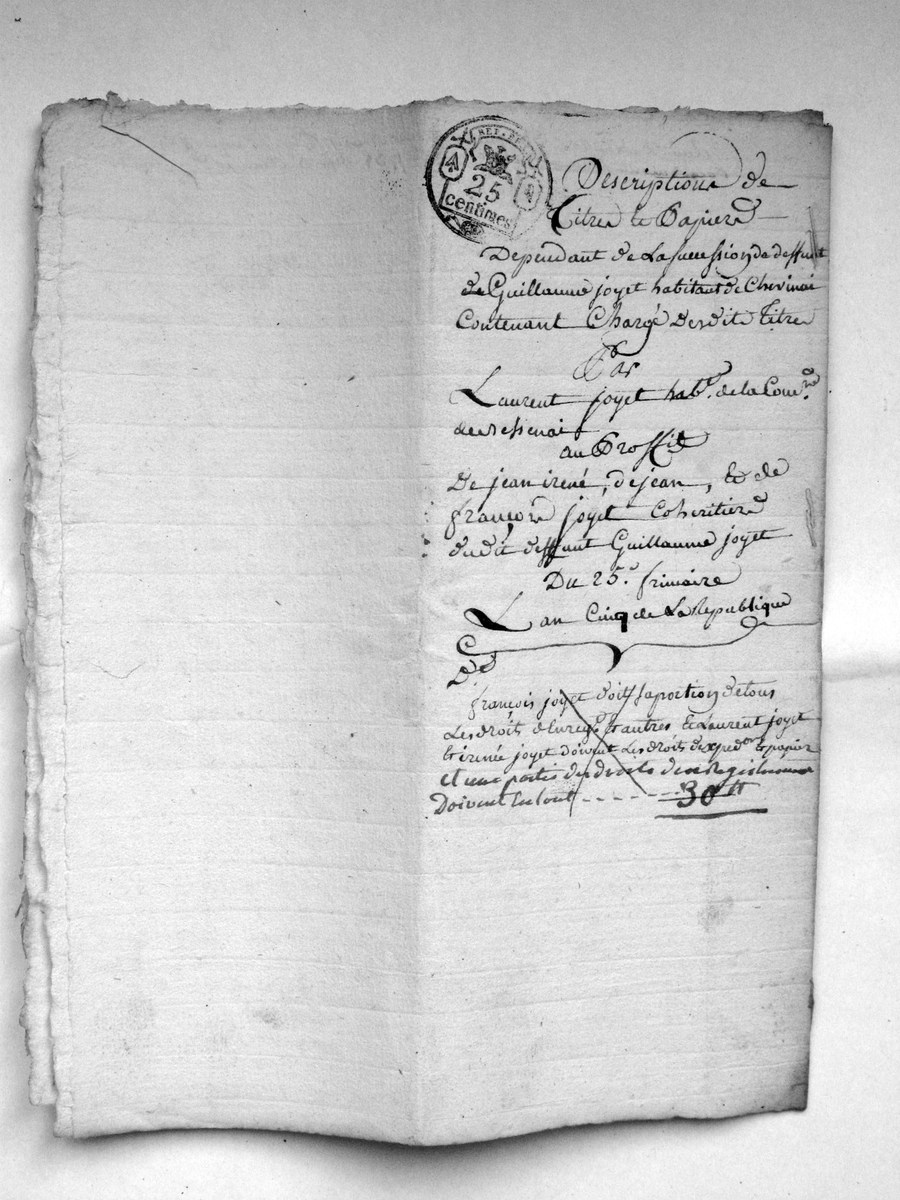 REP. FR.
25
centimes
Descriptions de
Titres et Papiers
Dependant de La succession de deffunt
de Guillaume joyet habitant de Chevinai
Contenant Charge Desdits Titres
Par
Laurent joyet habt. de la Comne.
de
au Proffit
De jean irené, de jean, et de
françois joyet Coheritiers
dudit deffunt Guillaume joyet
Du 25e. frimaire
L an Cinq de La Republique
françois joyet doit sa portion de tous
Les droits d'Enregt. et autres et Laurent joyet
et irenée joyet doivent Les droits d'expedon et papier
et une partie des droits d'enregistrement
Doivent En tout - - - - - 30 tt